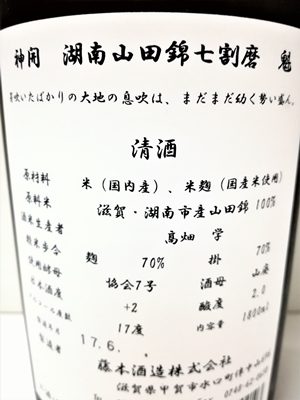 神開 湖南山田錦七割磨 魁
芽吹いたばかりの大地の息吹は、まだまだ幼く勢い盛ん。
清酒
原材料 米（国内産）、米麹（国産米使用）
原料米 滋賀・湖南市産山田錦 100%
酒米生産者 高畑 学
精米歩合 麹 70% 掛 70%
使用酵母 協会7号 酒母 山廃
日本酒度 +2 酸度 2.0
アルコール度数 17度 内容量 1800ml
製造年月 17.6.
製造者 藤本酒造株式会社
滋賀県甲賀市水口町伴中山